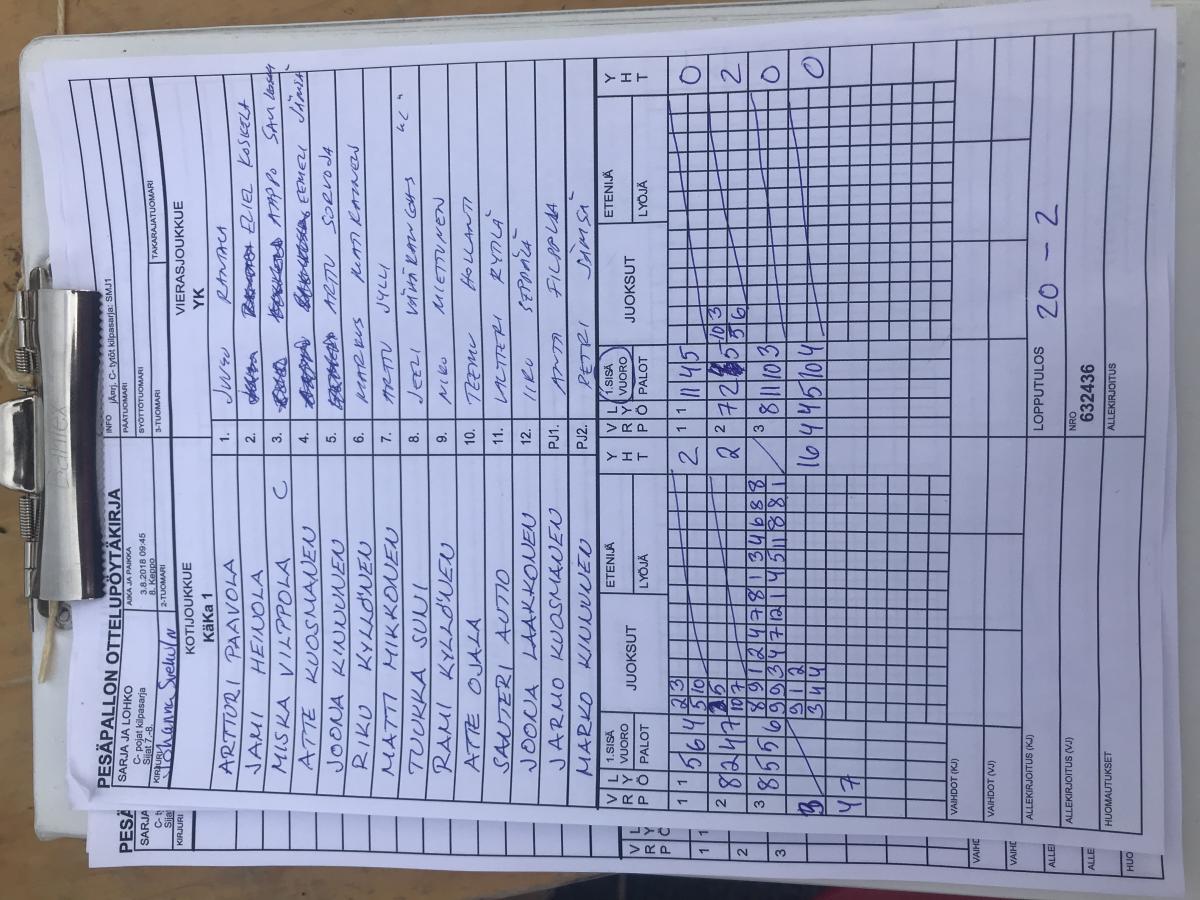 PESÄPALLON OTTELUPÖYTÄKIRJA
SARJA JA LOHKO
C- pojat kilpasarja
Sijat 7.-8.
AIKA JA PAIKKA
3.8.2018 09:45
8. Keppo
INFO jÄrrj. C- tytöt kilpasarja: SMJ1
PÄÄTUOMARI
SYÖTTÖTUOMARI
KIRJURI Johanna
2-TUOMARI
3-TUOMARI
TAKARAJATUOMARI
KOTIJOUKKUE
KäKa 1
VIERASJOUKKUE
YK
ARTTORI PAAVOLA 1. RANTALA
JAMI HEINOLA 2. ELIEL KOSKELA
MISKA VILPPOLA C 3. AAPPO
ATTE KUOSMANEN 4. EEMELI JÄMSÄ
JOONA KINNUNEN 5. ARTTU SORVOJA
RIKU KYLLÖNEN 6. MARKUS MATIKAINEN
MATTI MIKKONEN 7. ARTTU JYLLI
TUUKKA SUNI 8. JEELI VÄHÄKANGAS
RAMI KYLLÖNEN 9. NIKO MIETTUNEN
ATTE OJALA 10. TEEMU HOLLANTI
SANTERI AUTIO 11. VALTTERI RYTILÄ
JOONA LAAKKONEN 12. IIRO SEPPÄLÄ
JARMO KUOSMANEN PJ1. ANTTI FILPPULA
MARKO KINNUNEN PJ2. PETRI JÄMSÄ
V R P L Y Ö 1.SISÄ VUORO PALOT JUOKSUT ETENIJÄ LYÖJÄ Y H T V R P L Y Ö 1.SISÄ VUORO PALOT JUOKSUT ETENIJÄ LYÖJÄ Y H T
1 1 5 6 4 2 3 2 1 1 11 4 5 0
5 10
2 8 2 4 7 5 2 2 7 2 5 10 3 2
10 7 5 6
3 8 5 5 6 8 9 1 2 4 7 8 1 3 4 6 8 8 3 8 11 10 3 0
9 9 3 4 7 12 1 4 5 11 8 8 1
9 1 2 16 4 4 5 10 4 0
3 4 4
4 7
VAIHDOT (KJ)
VAIHDOT (VJ)
ALLEKIRJOITUS (KJ)
LOPPUTULOS 20 - 2
ALLEKIRJOITUS (VJ)
NRO
632436
HUOMAUTUKSET
ALLEKIRJOITUS